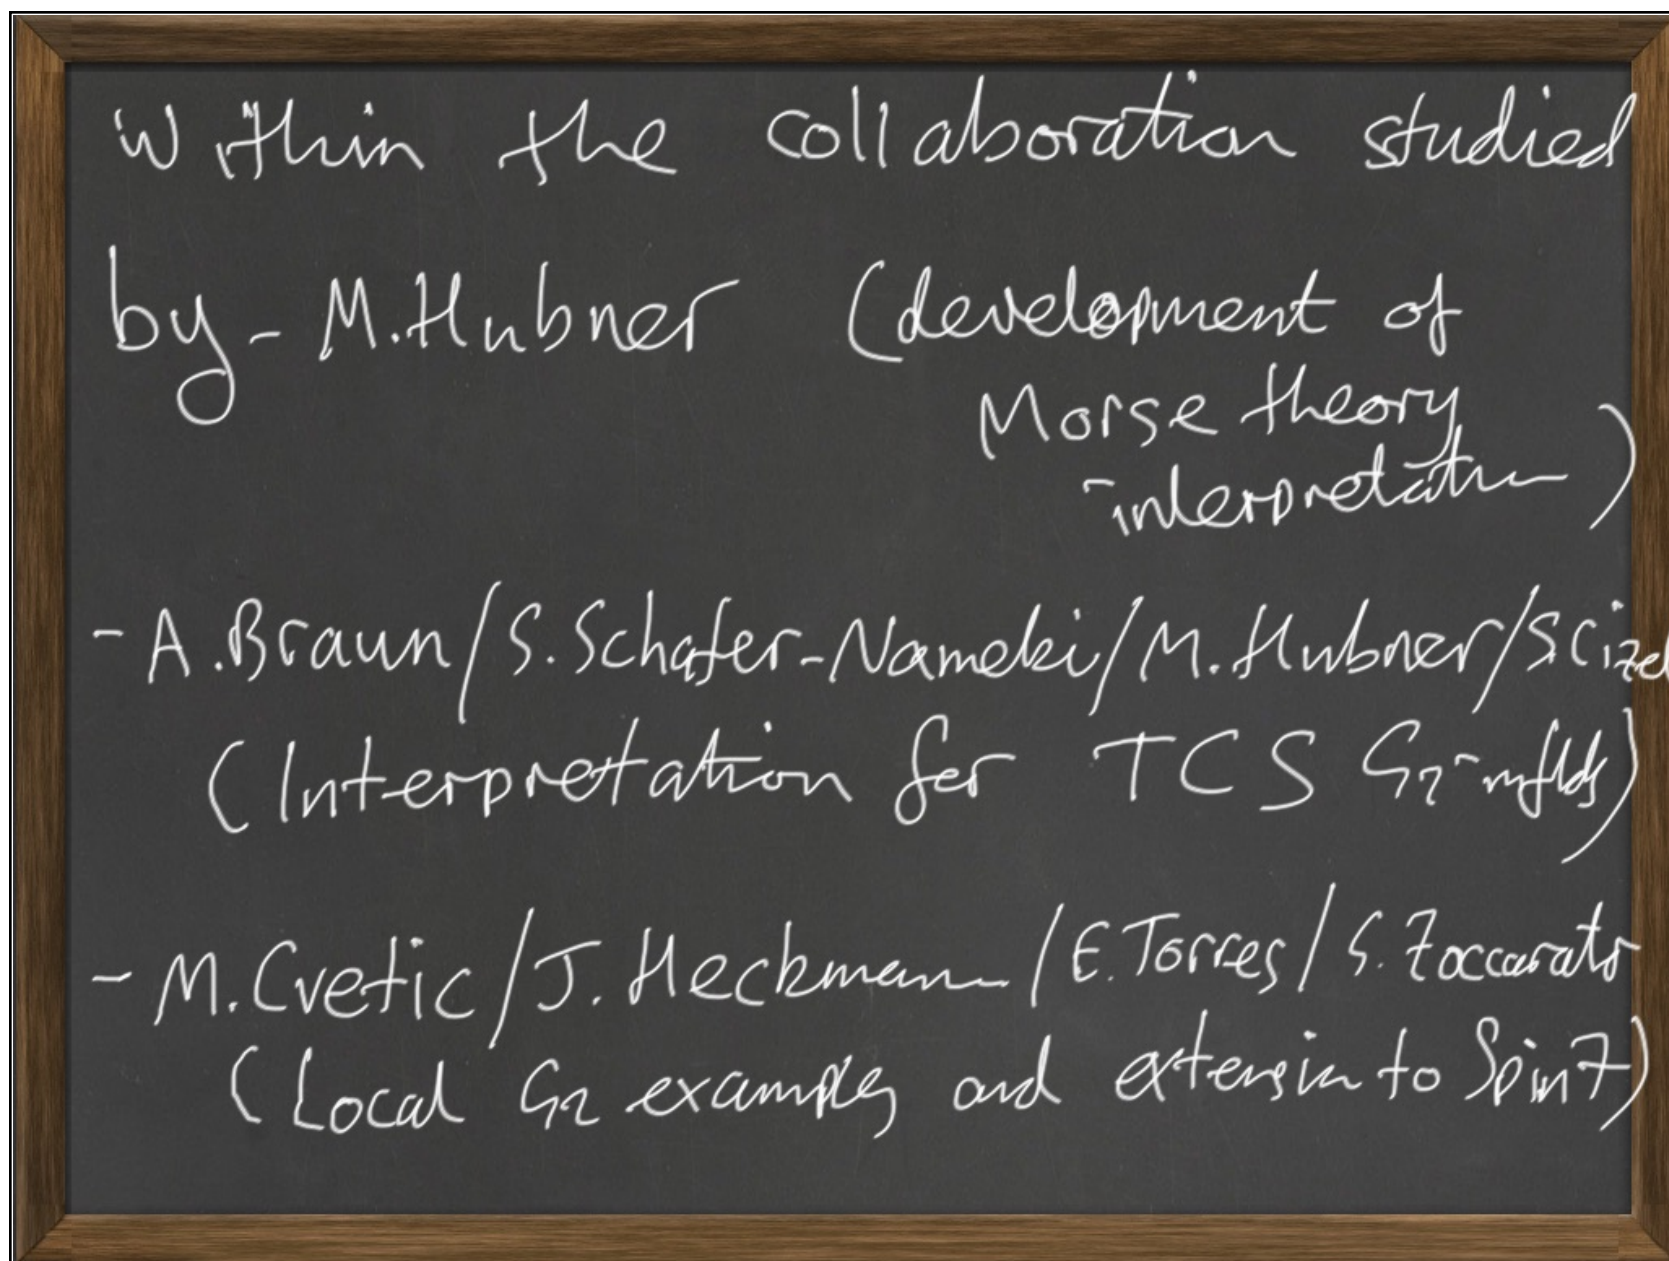 Within the collaboration studied
by - M. Hubner (development of
Morse theory
interpretation)
- A. Braun/S. Schafer-Nameki/M. Hubner/
(Interpretation for TCS G2-mflds)
- M. Cvetic/J. Heckman/E. Torres/S. Zoccarato
(Local G2 examples and extension to Spin 7)